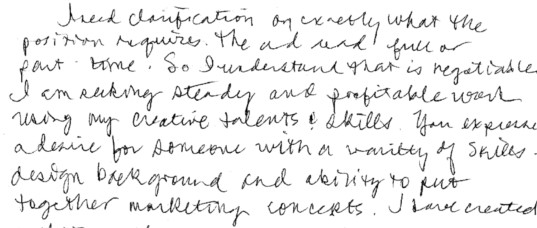 I need clarification on exactly what the
position requires. The ad read full or
part time. So I understand that is negotiable.
I am seeking steady and profitable work
using my creative talents & skills. You express
a desire for someone with a variety of skills -
design background and ability to put
together marketing concepts. I have created